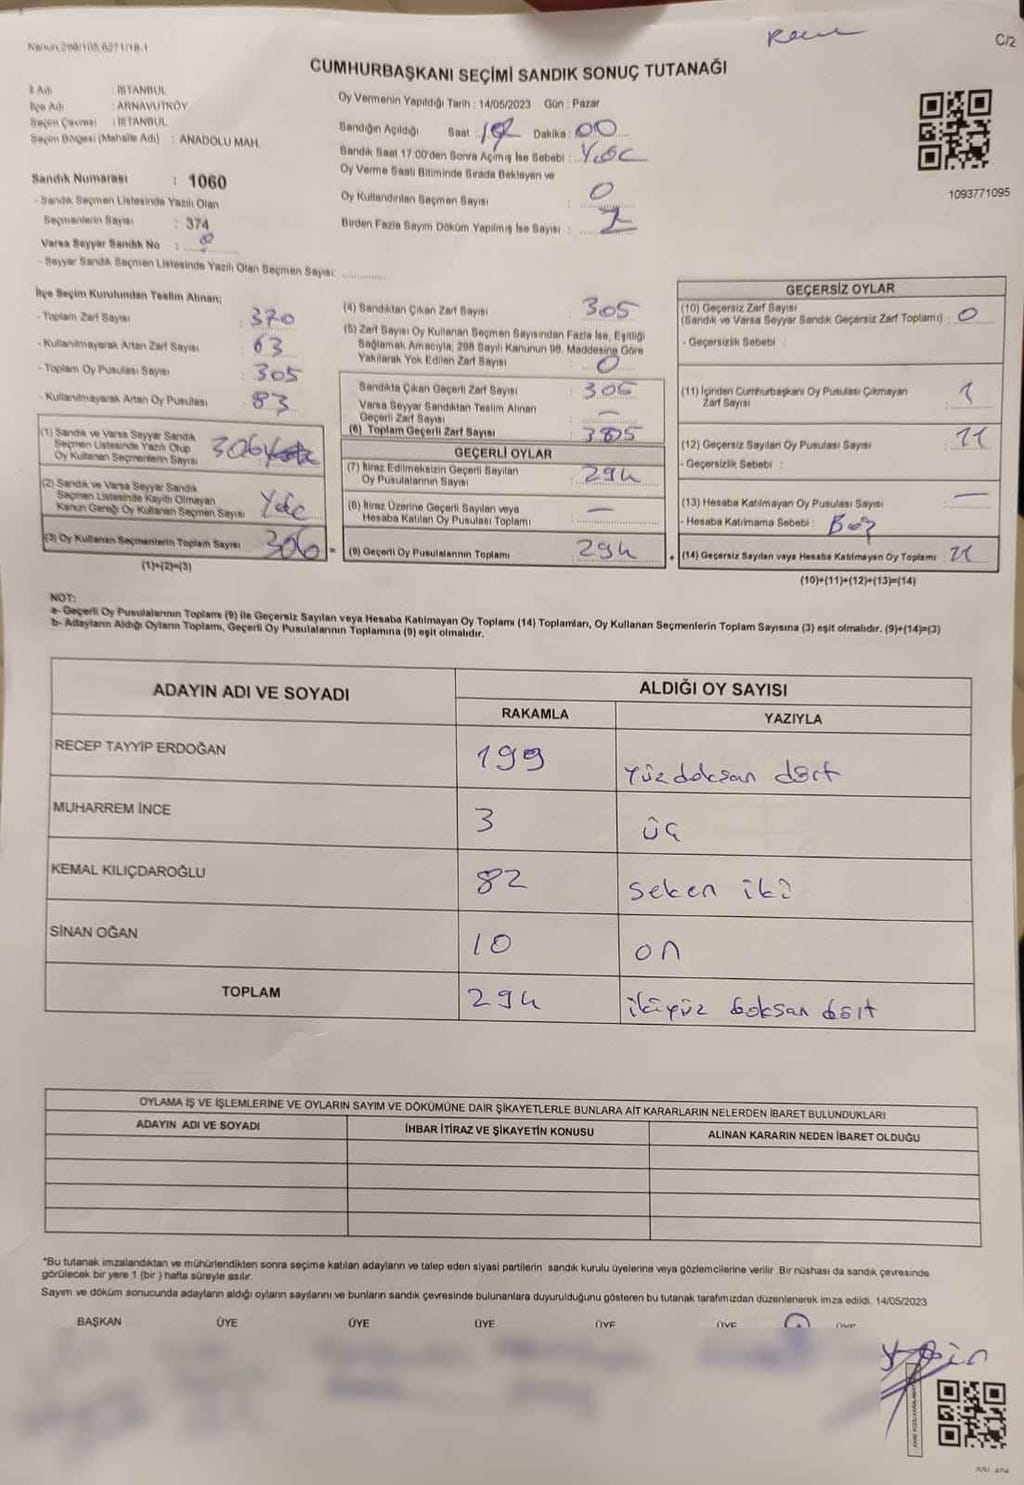 Kanun,298/103,6271/18-1
C/2
CUMHURBAŞKANI SEÇİMİ SANDIK SONUÇ TUTANAĞI
İl Adı : İSTANBUL
İlçe Adı : ARNAVUTKÖY
Seçim Çevresi : İSTANBUL
Seçim Bölgesi (Mahalle Adı) : ANADOLU MAH.
Sandık Numarası : 1060
- Sandık Seçmen Listesinde Yazılı Olan
Seçmenlerin Sayısı : 374
Varsa Seyyar Sandık No :
- Seyyar Sandık Seçmen Listesinde Yazılı Olan Seçmen Sayısı:
Oy Vermenin Yapıldığı Tarih : 14/05/2023 Gün : Pazar
Sandığın Açıldığı Saat : Dakika : 00
Sandık Saat 17:00'den Sonra Açılmış İse Sebebi :
Oy Verme Saati Bitiminde Sırada Bekleyen ve
Oy Kullandırılan Seçmen Sayısı : 0
Birden Fazla Sayım Döküm Yapılmış İse Sayısı :
1093771095
İlçe Seçim Kurulundan Teslim Alınan;
- Toplam Zarf Sayısı : 370
- Kullanılmayarak Artan Zarf Sayısı : 63
- Toplam Oy Pusulası Sayısı : 305
- Kullanılmayarak Artan Oy Pusulası : 83
(1) Sandık ve Varsa Seyyar Sandık
Seçmen Listesinde Yazılı Olup
Oy Kullanan Seçmenlerin Sayısı 306
(2) Sandık ve Varsa Seyyar Sandık
Seçmen Listesinde Kayıtlı Olmayan
Kanun Gereği Oy Kullanan Seçmen Sayısı
(3) Oy Kullanan Seçmenlerin Toplam Sayısı 306 =
(1)+(2)=(3)
(4) Sandıktan Çıkan Zarf Sayısı : 305
(5) Zarf Sayısı Oy Kullanan Seçmen Sayısından Fazla İse, Eşitliği
Sağlamak Amacıyla, 298 Sayılı Kanunun 98. Maddesine Göre
Yakılarak Yok Edilen Zarf Sayısı : 0
Sandıkta Çıkan Geçerli Zarf Sayısı : 305
Varsa Seyyar Sandıktan Teslim Alınan
Geçerli Zarf Sayısı : —
(6) Toplam Geçerli Zarf Sayısı : 305
GEÇERLİ OYLAR
(7) İtiraz Edilmeksizin Geçerli Sayılan
Oy Pusulalarının Sayısı : 294
(8) İtiraz Üzerine Geçerli Sayılan veya
Hesaba Katılan Oy Pusulası Toplamı : —
(9) Geçerli Oy Pusulalarının Toplamı : 294 +
GEÇERSİZ OYLAR
(10) Geçersiz Zarf Sayısı
(Sandık ve Varsa Seyyar Sandık Geçersiz Zarf Toplamı) : 0
- Geçersizlik Sebebi :
(11) İçinden Cumhurbaşkanı Oy Pusulası Çıkmayan
Zarf Sayısı : 1
(12) Geçersiz Sayılan Oy Pusulası Sayısı : 11
- Geçersizlik Sebebi :
(13) Hesaba Katılmayan Oy Pusulası Sayısı : —
- Hesaba Katılmama Sebebi : Boş
(14) Geçersiz Sayılan veya Hesaba Katılmayan Oy Toplamı :
(10)+(11)+(12)+(13)=(14)
NOT:
a- Geçerli Oy Pusulalarının Toplamı (9) ile Geçersiz Sayılan veya Hesaba Katılmayan Oy Toplamı (14) Toplamları, Oy Kullanan Seçmenlerin Toplam Sayısına (3) eşit olmalıdır. (9)+(14)=(3)
b- Adayların Aldığı Oyların Toplamı, Geçerli Oy Pusulalarının Toplamına (9) eşit olmalıdır.
ADAYIN ADI VE SOYADI
ALDIĞI OY SAYISI
RAKAMLA YAZIYLA
RECEP TAYYİP ERDOĞAN 199 Yüzdoksan dört
MUHARREM İNCE 3 üç
KEMAL KILIÇDAROĞLU 82 Seksen iki
SİNAN OĞAN 10 on
TOPLAM 294 ikiyüz doksan dört
OYLAMA İŞ VE İŞLEMLERİNE VE OYLARIN SAYIM VE DÖKÜMÜNE DAİR ŞİKAYETLERLE BUNLARA AİT KARARLARIN NELERDEN İBARET BULUNDUKLARI
ADAYIN ADI VE SOYADI İHBAR İTİRAZ VE ŞİKAYETİN KONUSU ALINAN KARARIN NEDEN İBARET OLDUĞU
*Bu tutanak imzalandıktan ve mühürlendikten sonra seçime katılan adayların ve talep eden siyasi partilerin sandık kurulu üyelerine veya gözlemcilerine verilir .Bir nüshası da sandık çevresinde
görülecek bir yere 1 (bir ) hafta süreyle asılır.
Sayım ve döküm sonucunda adayların aldığı oyların sayılarını ve bunların sandık çevresinde bulunanlara duyurulduğunu gösteren bu tutanak tarafımızdan düzenlenerek imza edildi. 14/05/2023
BAŞKAN ÜYE ÜYE ÜYE ÜYE ÜYE ÜYE